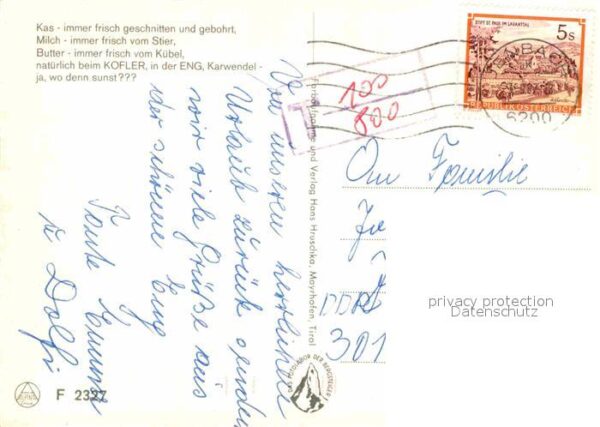 Kas - immer frisch geschnitten und gebohrt,
Milch - immer frisch vom Stier,
Butter - immer frisch vom Kübel,
natürlich beim KOFLER, in der ENG, Karwendel -
ja, wo denn sunst???
STIFT ST. PAUL IM LAVANTTAL
5s
REPUBLIK ÖSTERREICH
JENBACH
6200
T
100
800
Von unserem herrlichen
Urlaub zurück senden
wir viele Grüße aus
der schönen Eng
Tante Emma
u Dolfi
Farbaufnahme und Verlag Hans Hruschka, Mayrhofen, Tirol
An Familie
DDR
301
privacy protection
Datenschutz
DAS FOTOLABOR DER BERGSTEIGER
F 2327